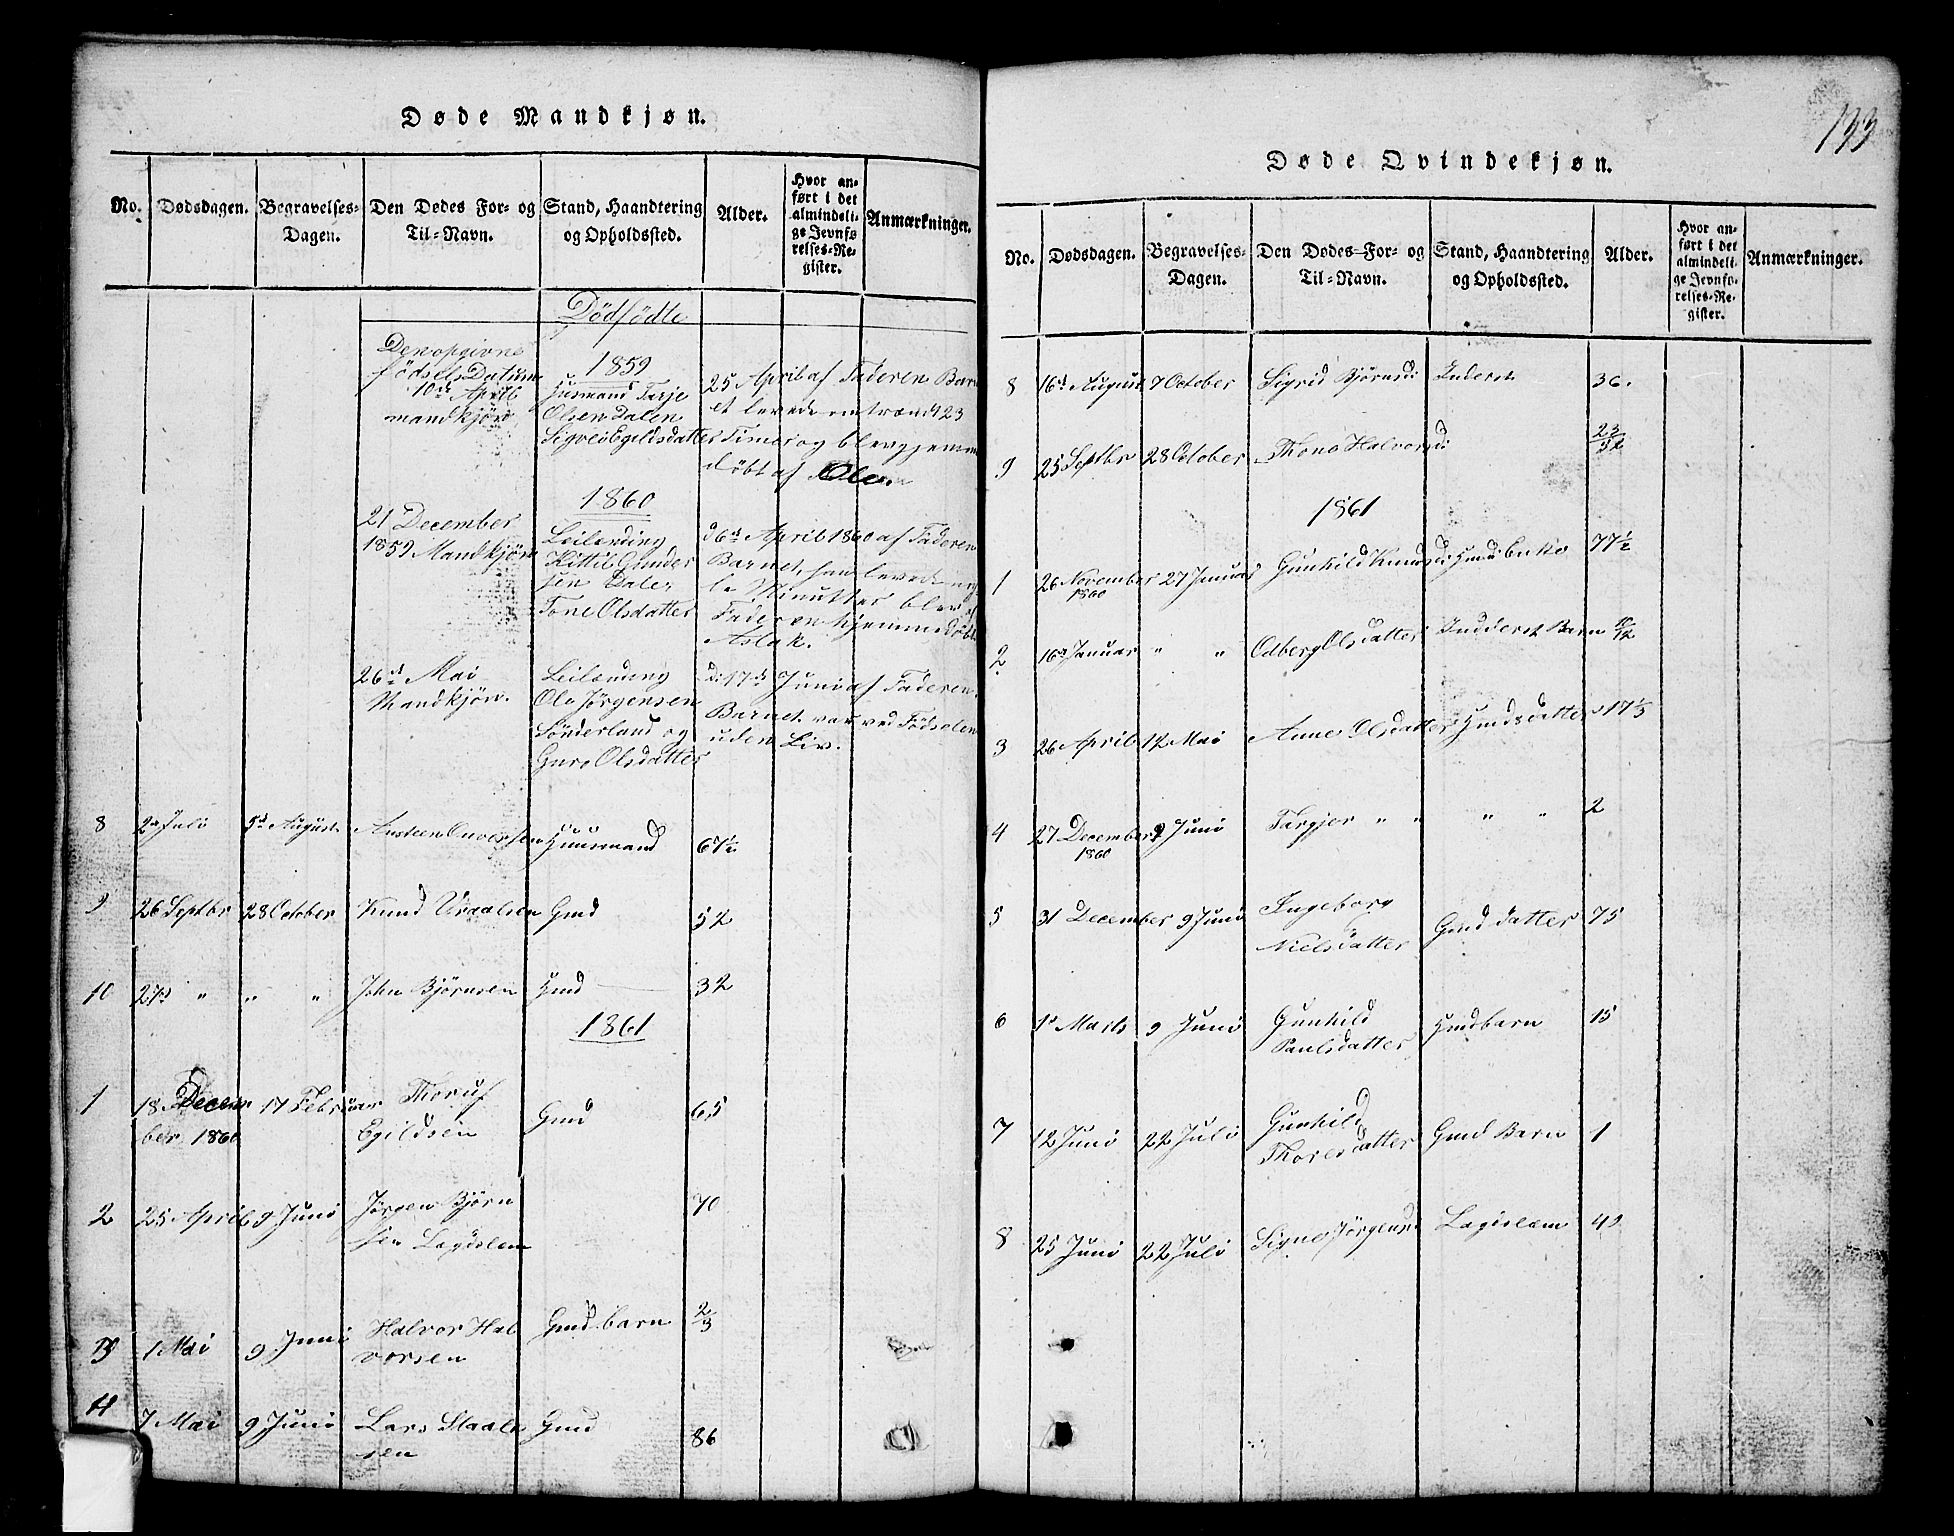 Døde Mandkjøn.
No. Dødsdagen. Begravelses-Dagen. Den Dødes For- og Til-Navn. Stand, Haandtering og Opholdssted. Alder. Hvor anført i det almindelige Jevnførelses-Register. Anmærkninger.
Dödfödte
1859
Den opgivne
födsels Datum
10de April
mandkjön
Huusmand Tarje
Olsen Dalen
25 April af Faderen Barn
et levede omtrændt 23
Timer og blev hjemme
döbt af Ole.
1860
21 December
1859 Mandkjön
Leilænding
Kittil Gunder
sen Dalen
Tone Olsdatter
April 1860 af Faderen
Barnet, som levede nog
le Minutter blev af
Faderen hjemmedöbt
Aslak.
26de Mai
Mandkjön.
Leilænding
Ole Jørgensen
Sönderland og
Guro Olsdatter
d: 17de Juni af Faderen.
Barnet var ved Födselen
uden Liv.
8 2d Juli 5d August Austeen Huusmand 67½
9 26 Septbr 28 October Knud Graalsen Gmd 52
10 27d " " " John Bjørnsen Hmd 32
1861
1 18 Decem
ber 1860 17 Februar
Egildsen Gmd 65
2 25 April 9 Juni Jørgen Bjørn
sen 70
3 1 Mai 9 Juni Halvor Hal
vorsen Gmd barn 2/3
4 7 Mai 9 Juni Lars Staale
sen Gmd 86
133
Døde Qvindekjøn.
No. Dødsdagen. Begravelses-Dagen. Den Dødes For- og Til-Navn. Stand, Haandtering og Opholdssted. Alder. Hvor anført i det almindelige Jevnførelses-Register. Anmærkninger.
8 16d August 7 October Sigrid Bjørnsd: Inderst 36.
9 25 Septbr 28 October Thone Halvorsd:
1861
1 26 November
1860 27 Januar Gunhild Knudsd: 77½
2 16d Januar " " Odberg Olsdatter Indderst Barn
3 26 April 12 Mai Anne Olsdatter Hmdsdatter
4 27 December
1860 9 Juni Targjer " " " " 2
5 31 December 9 Juni Ingeborg
Nielsdatter Gmd datter 75
6 1d Marts 9 Juni Gunhild
Paulsdatter Hmdbarn 15
7 12 Juni 22 Juli Gunhild
Thoresdatter Gmd Barn 1
8 25 Juni 22 Juli Signe Jørgensd: